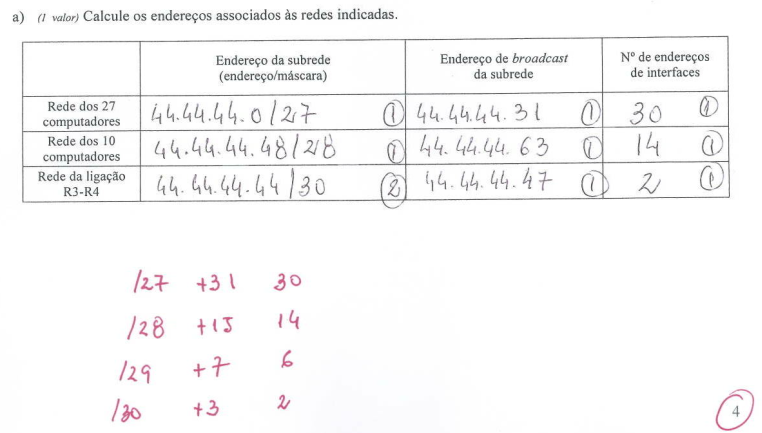 a) (1 valor) Calcule os endereços associados às redes indicadas.
Endereço da subrede (endereço/máscara) Endereço de broadcast da subrede Nº de endereços de interfaces
Rede dos 27 computadores 44.44.44.0/27 1 44.44.44.31 1 30 1
Rede dos 10 computadores 44.44.44.48/28 1 44.44.44.63 1 14 1
Rede da ligação R3-R4 44.44.44.44/30 2 44.44.44.47 1 2 1
/27 +31 30
/28 +15 14
/29 +7 6
/30 +3 2
4